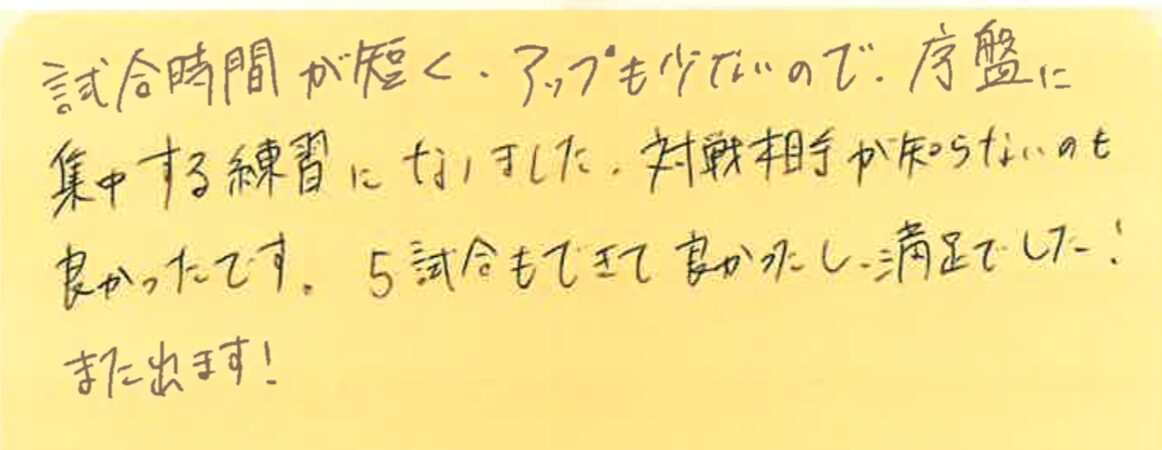 試合時間が短く、アップも少ないので、序盤に
集中する練習になりました。対戦相手が知らないのも
良かったです。5試合もできて良かったし、満足でした!
また出ます!